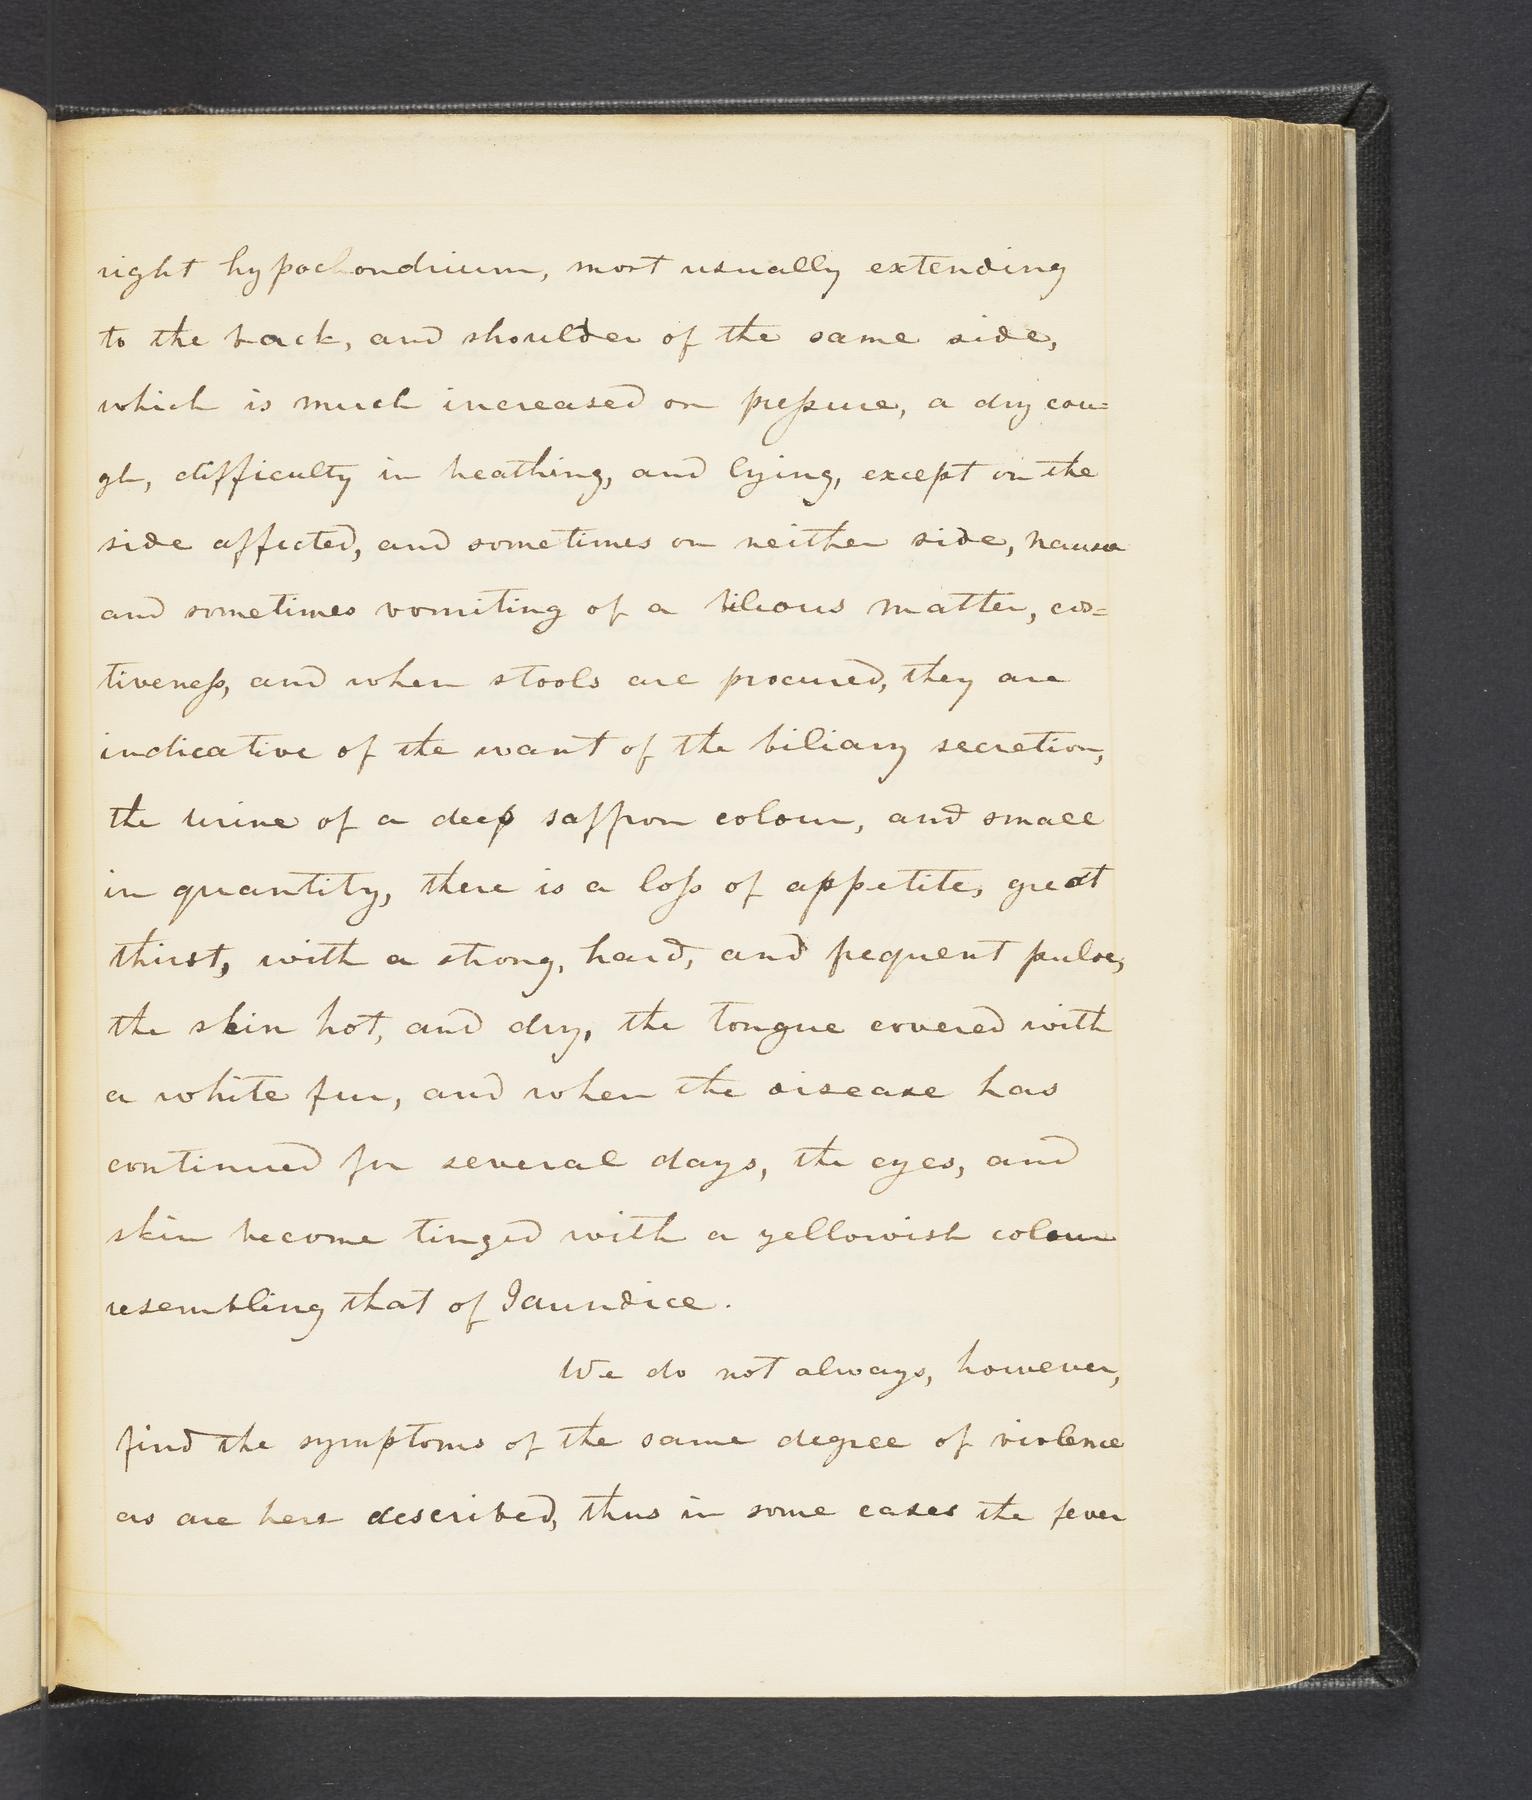 right hypochondrium, most usually extending
to the back, and shoulder of the same side,
which is much increased on preſsure, a dry cou=
gh, difficulty in breathing, and lying, except on the
side affected, and sometimes on neither side, nausea
and sometimes vomiting of a bilious matter, cos=
tiveneſs, and when stools are procured, they are
indicative of the want of the biliary secretion,
the urine of a deep saffron colour, and small
in quantity, there is a loſs of appetite, great
thirst, with a strong, hard, and frequent pulse,
the skin hot, and dry, the tongue covered with
a white fur, and when the disease has
continued for several days, the eyes, and
skin become tinged with a yellowish colour
resembling that of Jaundice.
We do not always, however,
find the symptoms of the same degree of violence
as are here described, thus in some cases the fever